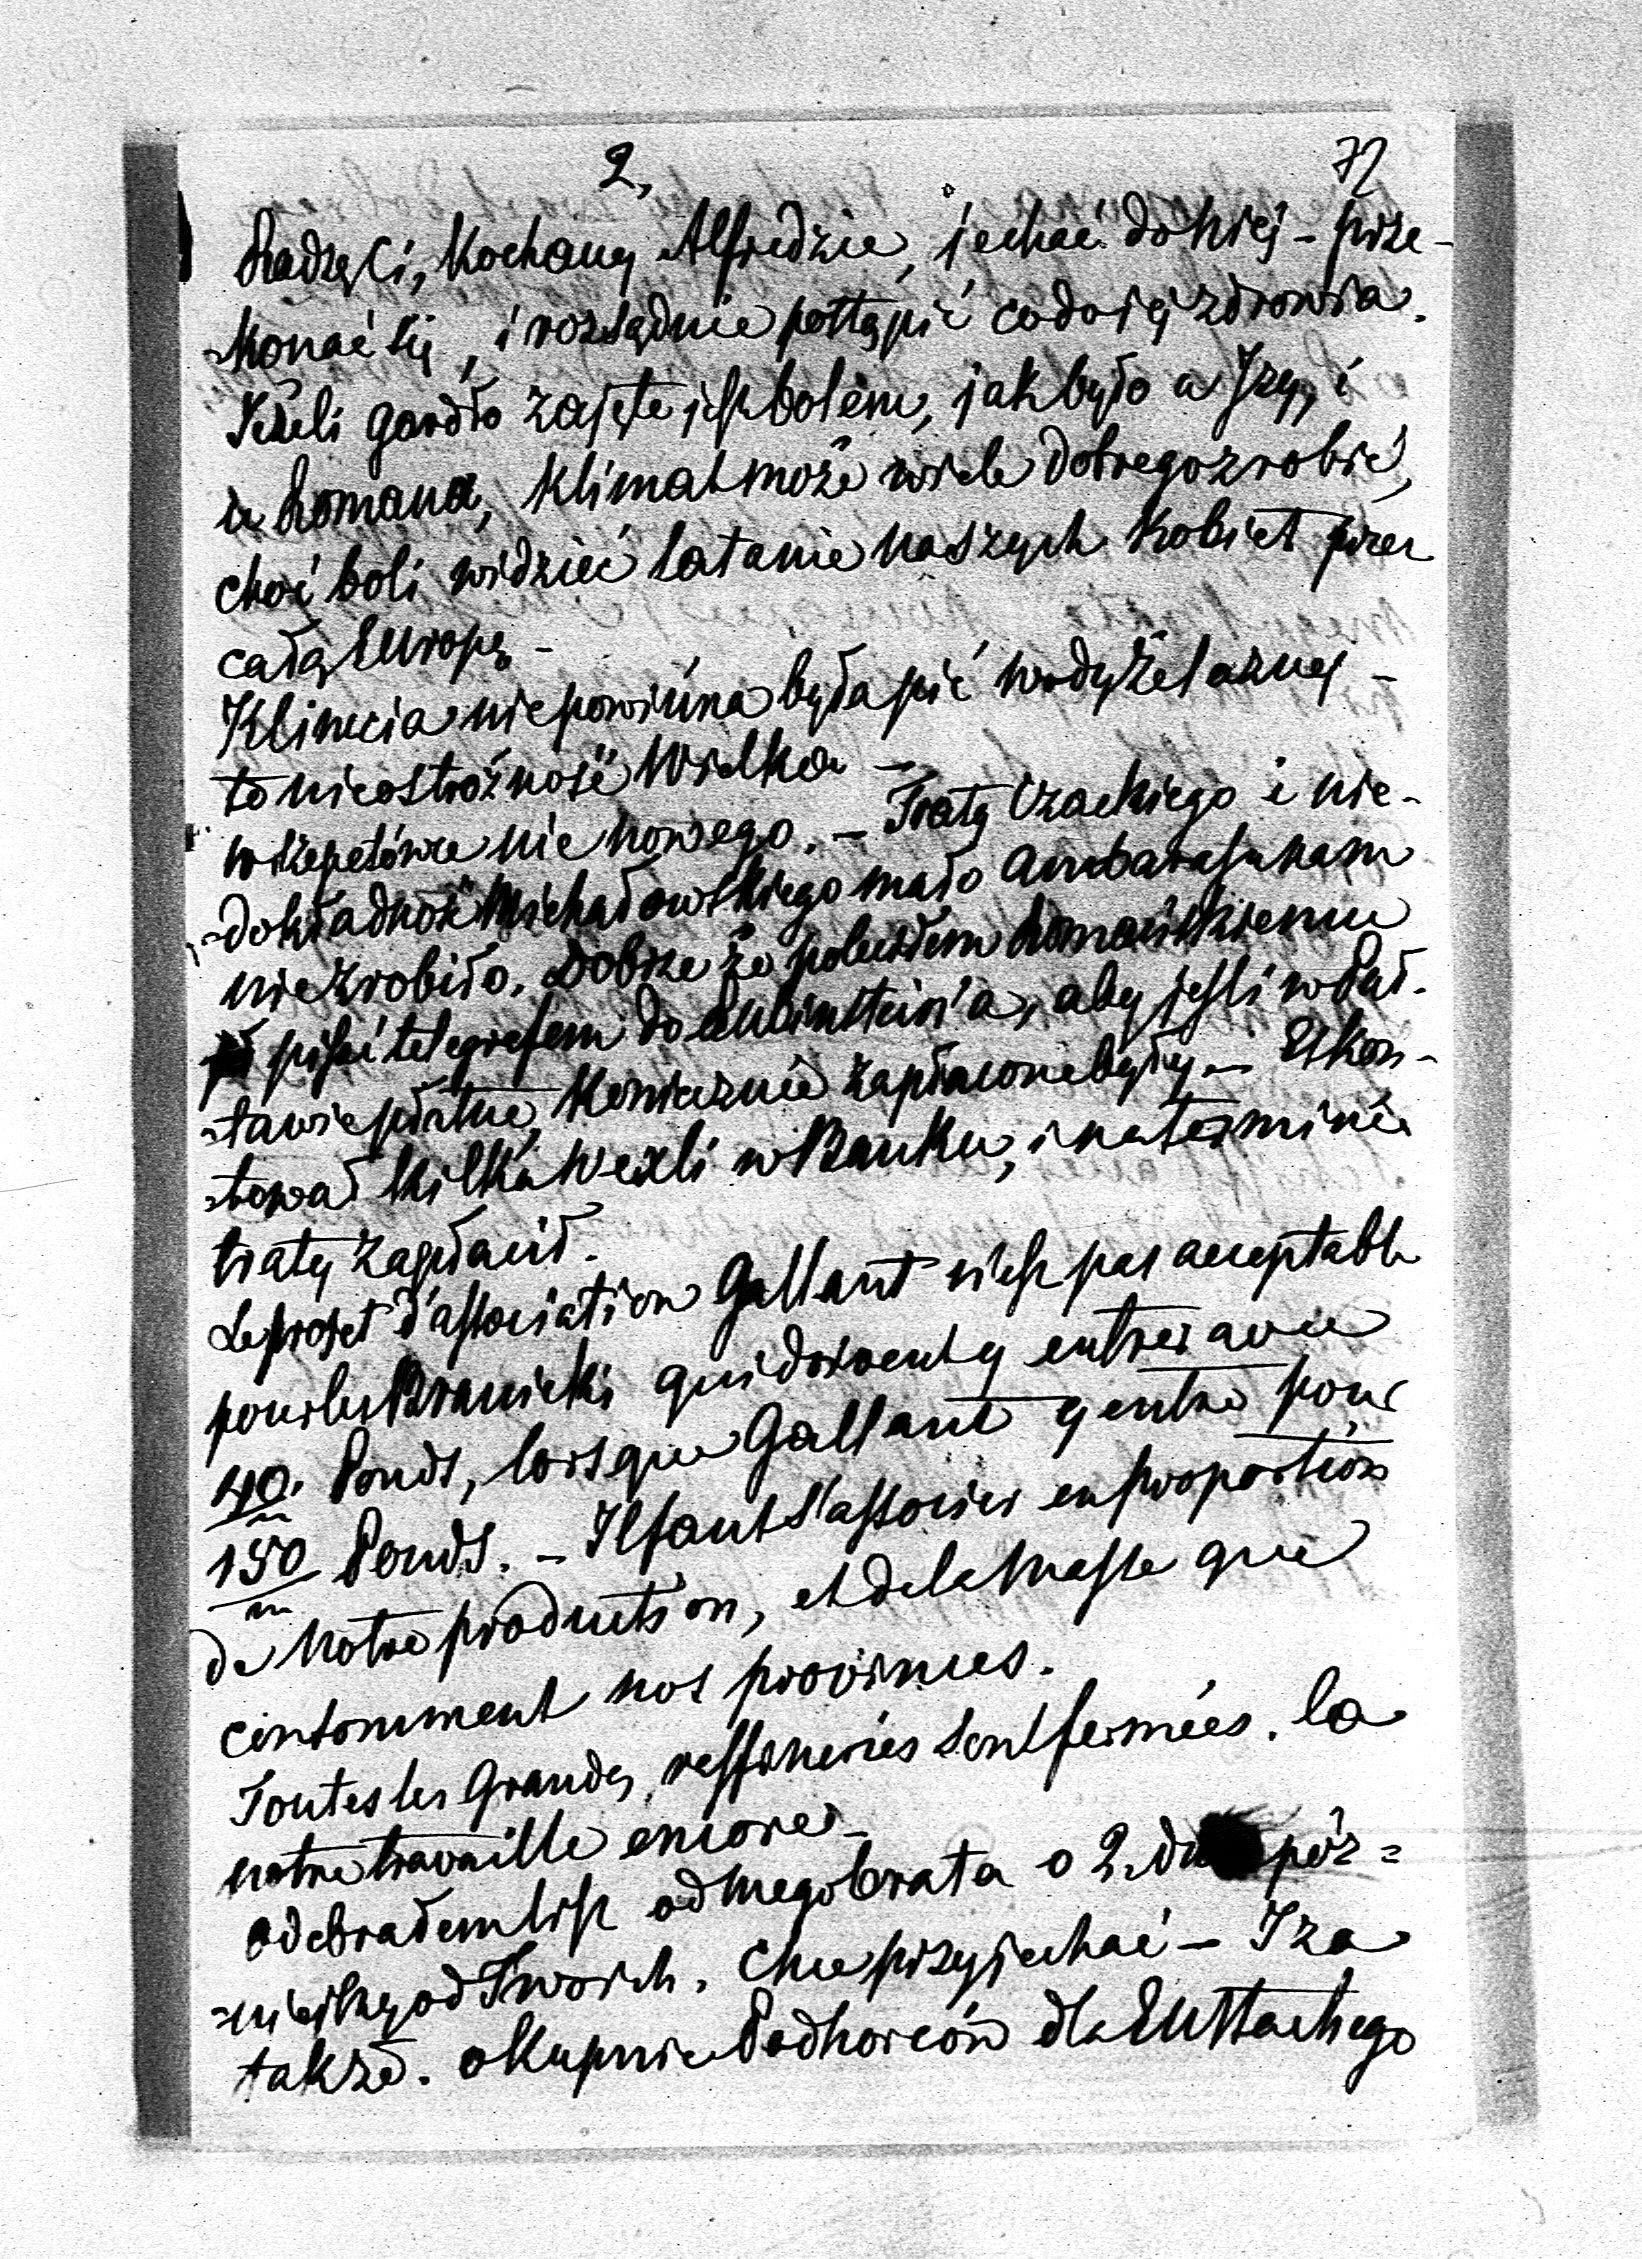 2,
72
Radzę Ci, Kochany Alfredzie, jechać do Niej – prze-
konać się, i rozsądnie postąpić co do jej zdrowia.
Jeżeli gardło zajęte jest bolem, jak było u Izy, i
u Romana, Klimat może wiele dobrego zrobić,
choć boli widzieć latanie naszych Kobiet przez
całą Europę –
Klimcia nie powinna była pić wody żelaznej –
to nieostrożność Wielka –
w Szepetówce nic nowego. – Traty Czackiego i nie-
dokładność Michałowskiego mało ambarasu nam
nie zrobiło. Dobrze że poleciłem Romańskiemu
pisać telegrafem do Rubinstein'a, aby jeśli w Pał-
tawie płatne, koniecznie zapłacone były – Eskon-
tował kilka Wexli w Banku, i na termina
traty zapłacił.
Le projet d'association Gallant n'est pas acceptable
pour les Branicki qui doivent y entrer avec
40/m Pouds, lorsque Gallant y entre pour
150/m Pouds. – Il faut s'associer en proportion
de notre production, et de la Masse que
consomment nos provinces.
Toutes les Grandes raffineries sont fermées. la
notre travaille encore –
Odebrałem list od mego brata o 2 dni póz-
niejszy od Twoich. Chce przyjechać – Iza
także. o Kupnie Podhorców dla Eustachego